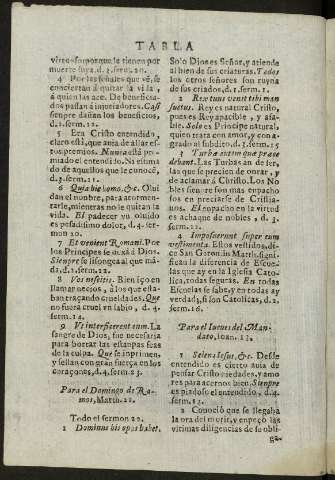 TABLA
virtuosporque le tienen por
muerte suya. d. 3. serm. 20.
4 Por las señales que vé, se
conciertan á quitar la vida,
á quien las ace. De beneficia-
dos passan á injuriadores. Casi
siempre dañan los beneficios,
d. serm. 12.
5 Era Cristo entendido,
claro está, que avia de allar es-
tos premios. Nunca está pre-
miado el entendido. Ni estima
do de aquellos que le conocē,
d. serm. 21.
6 Quia hic homo. &c. Olvi
dan el nombre, para atormen-
tarle, mientras no le quitan la
vida. El padecer vn olvido
es pesadissimo dolor, d. 4. ser-
mon 20.
7 Et venient Romani. Por
los Principes se ausa á Dios.
Siempre se lisongea al que mā-
da, d. serm. 22.
8 Vos nescitis. Bien iço en
llamar necios, á los que esta-
ban traçando crueldades. Que
no fuera cruel vn sabio, d. 4.
serm. 14.
9 Ve interficerent eum. La
sangre de Dios, fue necesaria
para borrar las estanpas feas
de la culpa. Que se inprimen,
y sellan con gran fuerça en los
coraçones, d. 4. serm. 23.
Para el Domingo de Ra-
mos, Matth. 21.
Todo el sermon 22.
1 Dominus his opus habet.
Solo Dios es Señor, y atiende
al bien de sus criaturas. Todos
los otros señores son ruyna
de sus criados, d. 1. serm. 1.
2 Rex tuus venit tibi man
suetus. Rey es natural Cristo,
pues es Rey apacible, y a-
fable. Solo es Principe natural,
quien trata con amor, y con a-
grado al subdito. d. 3. serm. 15
3 Turbæ autem quæ præce
debant. Las Turbas an de ser,
las que se precien de onrar, y
de aclamar á Christo. Los No
bles sienpre son mas enpacho
sos en preciarse de Cristia-
nos. El enpacho en la virtud
es achaque de nobles, d. 3.
serm. 12.
4 Imposuerunt super eum
vestimenta. Estos vestidos, di-
ce San Geronimo Marth. signifi-
can la diferencia de Escue-
las que ay en la Iglesia Cato-
lica, todas seguras. En todas
Escuelas se sabe, y en todas ay
verdad, si son Catolicas, d. 2.
serm. 16.
Para el Iueves del Man-
dato, ioan. 13.
1 Sciens Iesus, &c. Desde
entendido es cierto avia de
pensar Cristo piedades, y amo
res para acernos bien. Siempre
es piadoso el entendido, d. 4.
serm. 13.
2 Conoció que se llegaba
la ora del morir, y enpeçó las
vltimas diligencias de se obli-
ga-